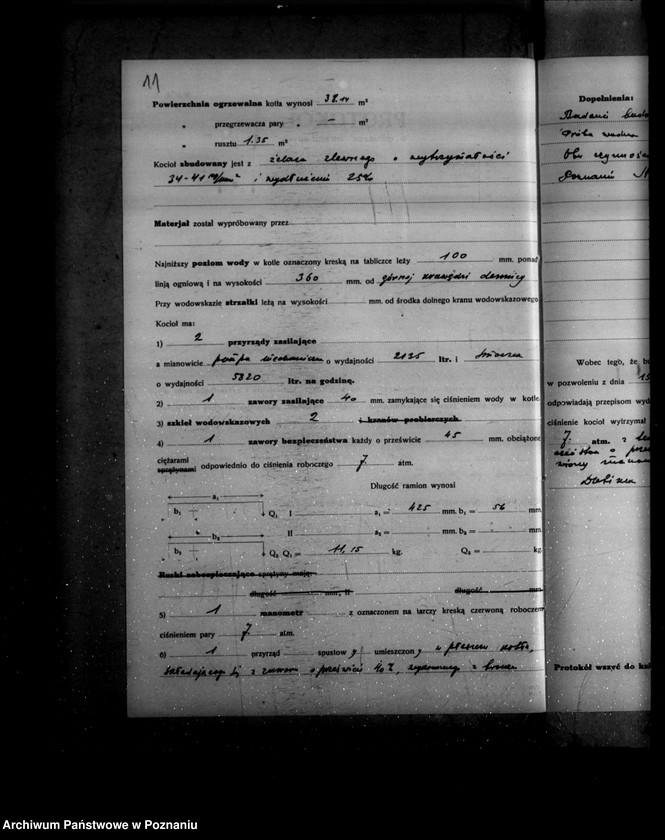 11
Powierzchnia ogrzewalna kotła wynosi 38.14 m²
„ przegrzewacza pary „ — m²
„ rusztu 1.35 m²
Kocioł zbudowany jest z żelaza zlewnego o wytrzymałości
34-41 kg/mm² i wydłużeniu 25%
Materjał został wypróbowany przez
Najniższy poziom wody w kotle oznaczony kreską na tabliczce leży 100 mm. ponad
linją ogniową i na wysokości 360 mm. od górnej krawędzi dennicy
Przy wodowskazie strzałki leżą na wysokości mm. od środka dolnego kranu wodowskazowego
Kocioł ma:
1) 2 przyrządy zasilające
a mianowicie pompa mechaniczna o wydajności 2135 ltr. i
o wydajności 5820 ltr. na godzinę.
2) 1 zawory zasilające 40 mm. zamykające się ciśnieniem wody w kotle
3) szkieł wodowskazowych 2 i kranów probierczych
4) 1 zawory bezpieczeństwa każdy o prześwicie 45 mm. obciążone
ciężarami
sprężynami odpowiednio do ciśnienia roboczego 7 atm.
Długość ramion wynosi
a₁
b₁ Q₁ I a₁ = 425 mm. b₁ = 56 mm.
b₂ II a₂ = mm. b₂ = mm.
b₂ Q₂ Q₁ = 11,15 kg. Q₂ = kg.
Rurki zabezpieczające sprężyny mają:
długość mm, II długość mm.
5) 1 manometr z oznaczonem na tarczy kreską czerwoną roboczem
ciśnieniem pary 7 atm.
6) 1 przyrząd spustowy umieszczony w płaszczu kotła,
składającego się z zaworu o prześwicie 40 z
Dopełnienia:
Badanie
Próba wodna
Poznaniu
Wobec tego, że
w pozwoleniu z dnia 15
odpowiadają przepisom
ciśnienie kocioł wytrzymał
7 atm. z
Protokół wszyć do
Archiwum Państwowe w Poznaniu